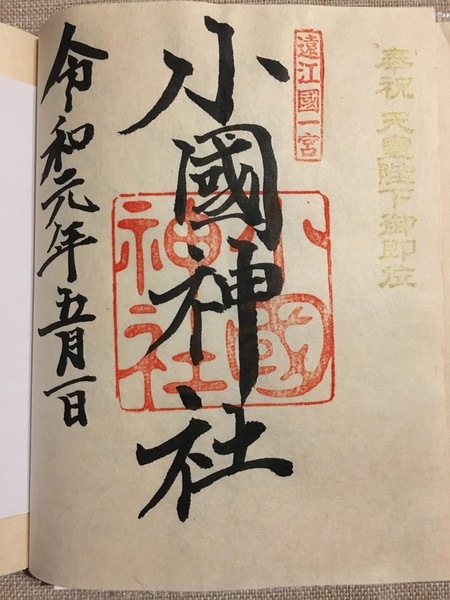 奉祝 天皇陛下御即位
遠江國一宮
小國神社
小國
神社
令和元年五月一日